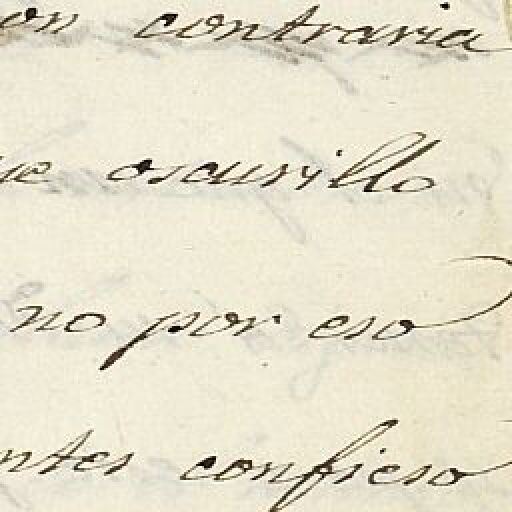 on contraria
ue oscurillo
no por eso
ntes confieso